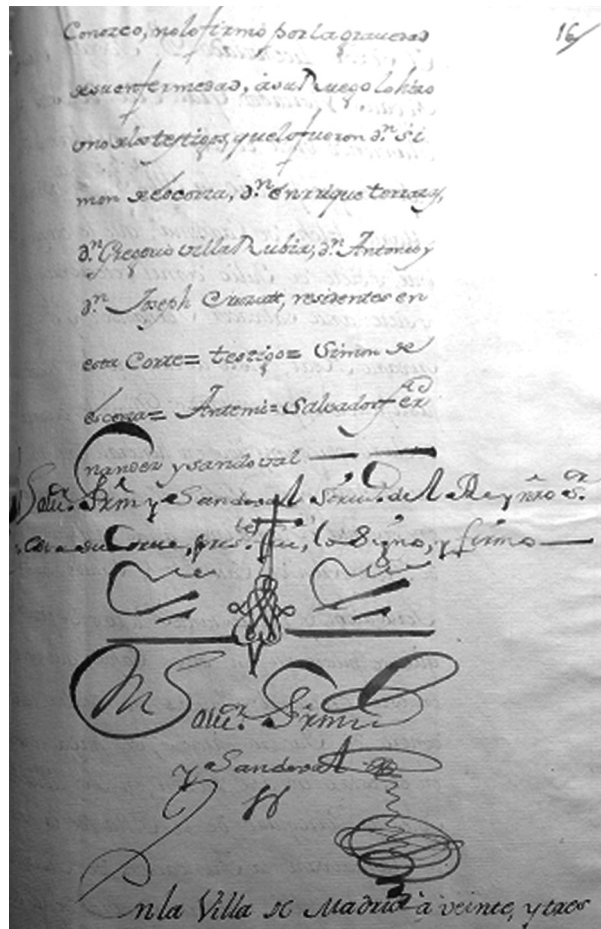 16
Conozco, nolofirmò por la gravedad
desuenfermedad, àsu Ruego lohizo
vno delos testigos, quelofueron Dn. Si
mon de Escorza, Dn. Enrrique terraz,
Dn. Gregorio villa Rubia, Dn. Antonio y
Dn. Joseph residentes en
esta Corte= testigo= Simon de
escorza= Antemi= Salvador Fer
nandez y sandobal
Salvr. Frnz y Sandoval Srivno. del Rey nro Sr.
su Corte, preste. fui, lo signo, y firmo
Salvr. Frnz
y Sandoval
En la Villa de Madrid à veinte, y tres